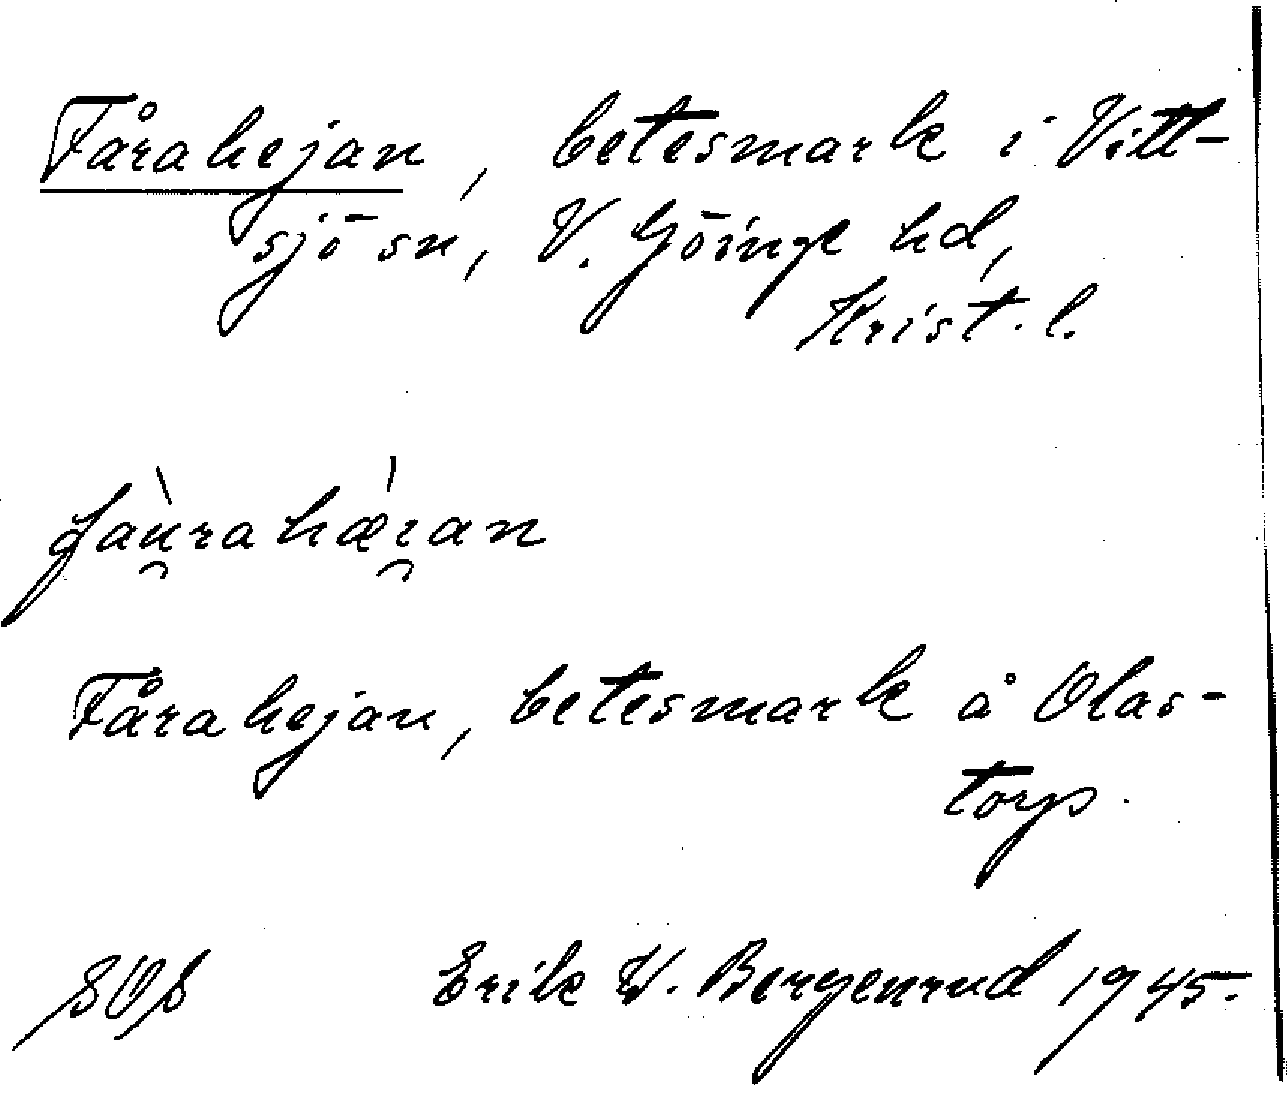 Fårahejan, betesmark i Vitt-
sjö sn, V. Göinge hd,
Krist. l.
fàu̯rahǽı̯an
Fårahejan, betesmark å Olas-
torp.
SOS Erik W. Bergenrud 1945.